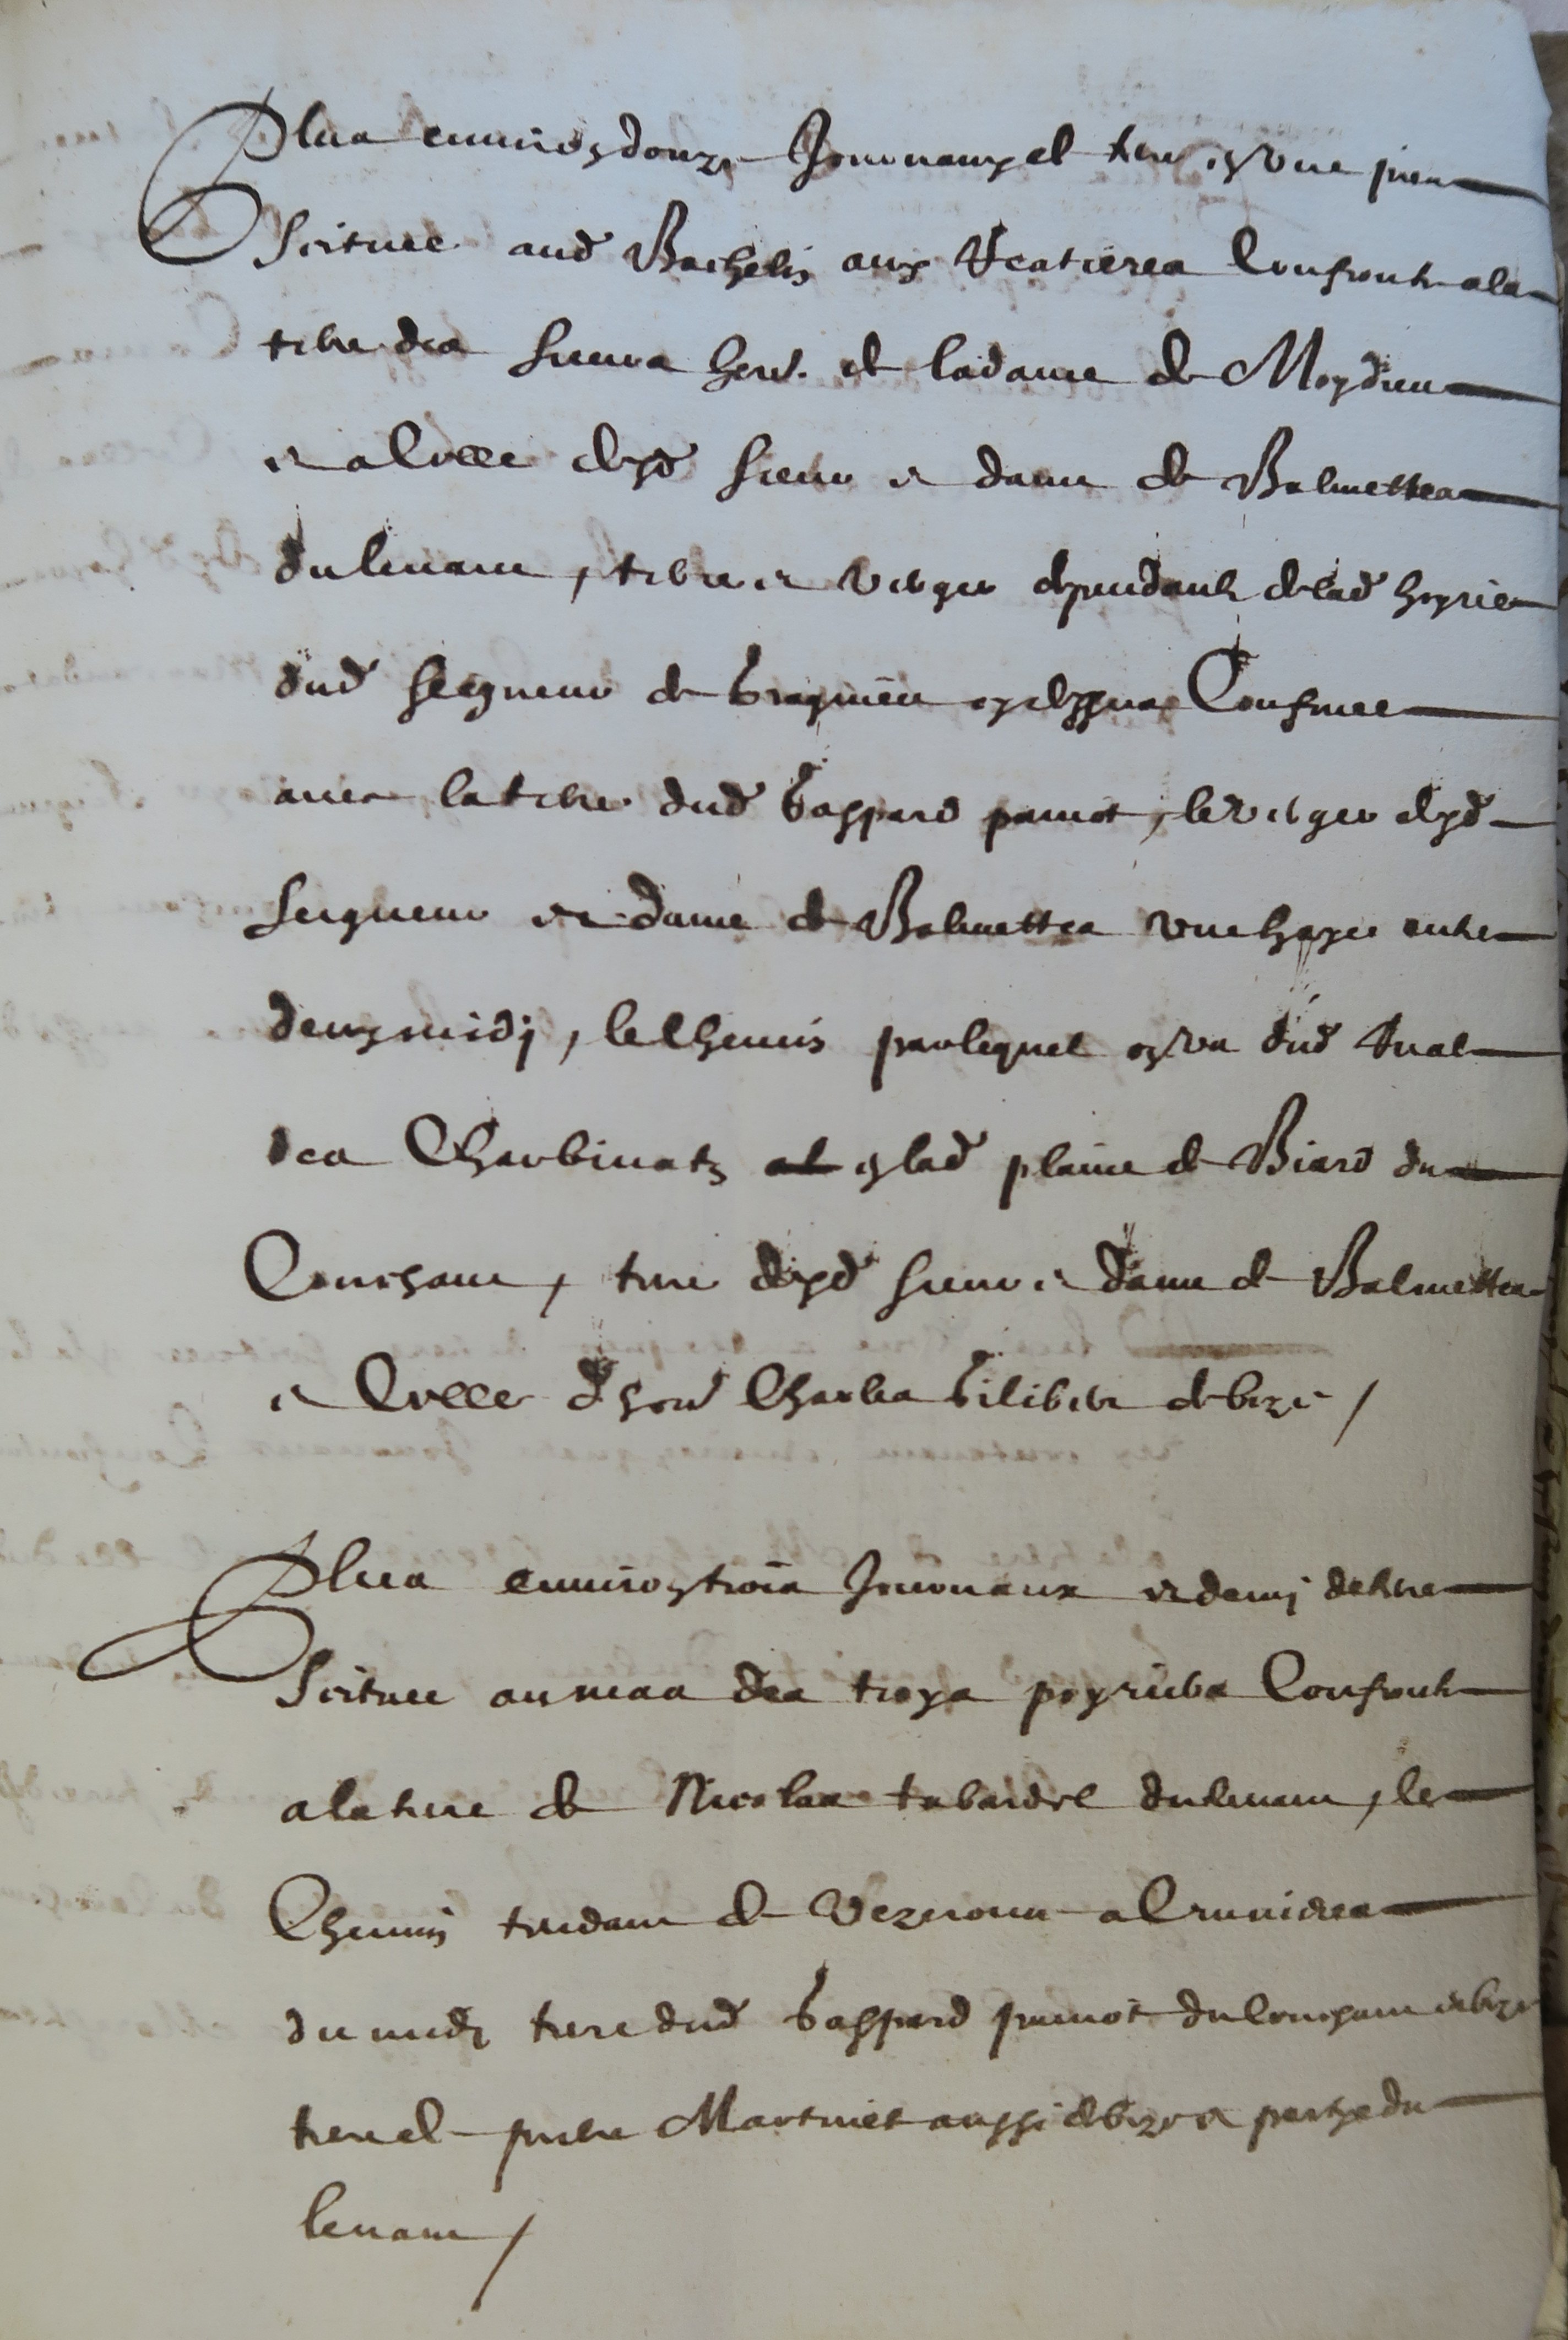 Plus environ douze Journaux de terre en une piece
Scituee aud Bachelin aux Veatieres Confronte a la
terre des sieurs hoirs. et la dame de Moydieu
et a Celle desd sieur et dame de Balmettes
du levant, terre et verger dependants de lad hoyrie
dud seigneur de Gragnieu
avec la terre dud Gaspard , le verger desd
Seigneur et dame de Balmettes une haye entre
deux midj, le Chemin par lequel on va dud
des Charbinats en lad plaine de Biard du
Couchant, terre desd sieur et dame de Balmettes
et Celle d Charles Filibert de bize /
Plus environ trois Journaux et demj de terre
Scituee au mas des troys poyriers Confronte
a la terre de Nicolas tabardel du levant, le
Chemin tendant de Vezeronce a Crucieres
du midy terre dud Gaspard du Couchant et bize
terre de pierre Martinet aussi de bize et partye du
levant /